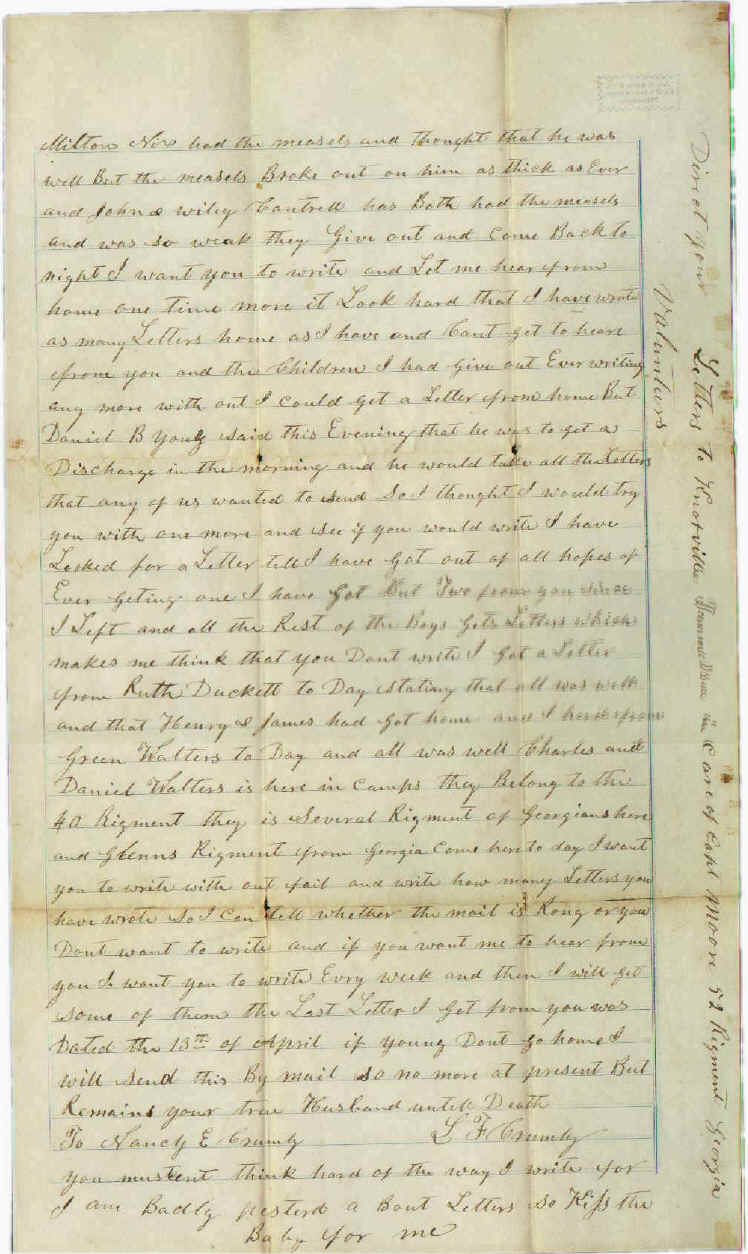 Milton Nix had the measels and thought that he was
well But the measels Broke out on him as thick as Ever
and John & wiley Cantrell has Both had the measels
and was so weak they Give out and Come Back to
night I want you to write and Let me hear from
home one time more it Look hard that I have wrote
as many Letters home as I have and Cant get to hear
from you and the Children I had give out Ever writing
any more with out I could get a Letter from home But
Daniel B Young said this Evening that he was to get a
Discharge in the morning and he would take all the Letters
that any of us wanted to send So I thought I would try
you with one more and see if you would write I have
Looked for a Letter till I have Got out of all hopes of
Ever geting one I have Got But Two from you since
I Left and all the Rest of the Boys Gets Letters which
makes me think that you Dont write I Got a Letter
from Ruth Duckett to Day stating that all was well
and that Henry & James had Got home and I heard from
Green Walters to Day and all was well Charles and
Daniel Walters is here in Camps they Belong to the
40 Rigment they is Several Rigment of Georgians here
and Glenns Rigment from Georgia Come here to day I want
you to write with out fail and write how many Letters you
have wrote So I Can tell whether the mail is Rong or you
Dont want to write and if you want me to hear from
you I want you to write Evry week and then I will get
some of them the Last Letter I Got from you was
Dated the 13th of April if young Dont go home I
will send this By mail so no more at present But
Remains your true Husband untill Death
To Nancy E Crumly L F Crumly
you mustent think hard of the way I write for
I am Badly pesterd a Bout Letters so Kiss the
Baby for me
Direct your Letters to Knoxville in Care of Capt Moore 52 Rigment Georgia
Volunteers